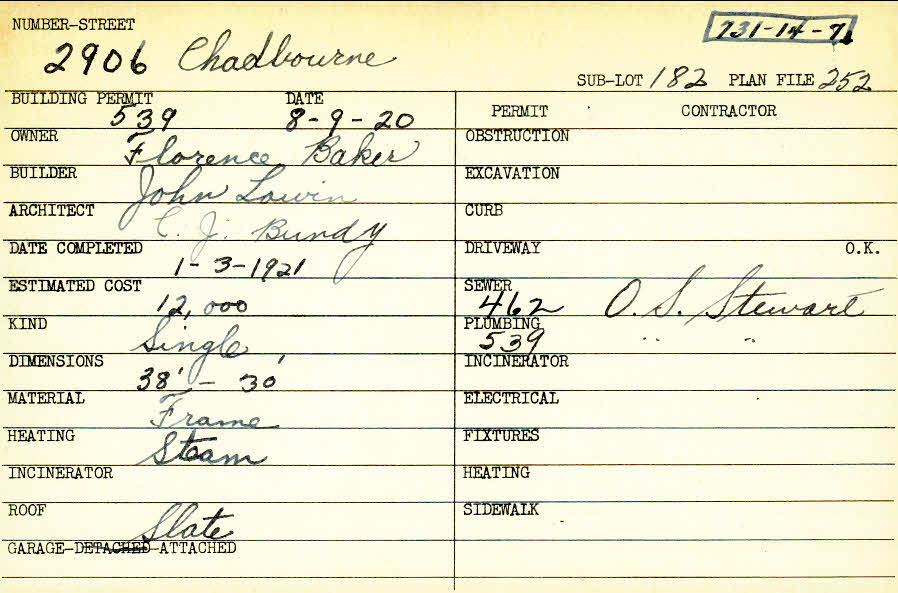 NUMBER-STREET
731-14-71
2906 Chadbourne
SUB-LOT 182 PLAN FILE 252
BUILDING PERMIT DATE
539 8-9-20
PERMIT CONTRACTOR
OWNER Florence Baker
OBSTRUCTION
BUILDER John Lowin
EXCAVATION
ARCHITECT C. J. Bundy
CURB
DATE COMPLETED
1-3-1921
DRIVEWAY O.K.
ESTIMATED COST
12,000
SEWER
462 O. S. Stewart
KIND Single
PLUMBING
539 " "
DIMENSIONS
38' - 30'
INCINERATOR
MATERIAL Frame
ELECTRICAL
HEATING Steam
FIXTURES
INCINERATOR
HEATING
ROOF Slate
SIDEWALK
GARAGE-DETACHED-ATTACHED